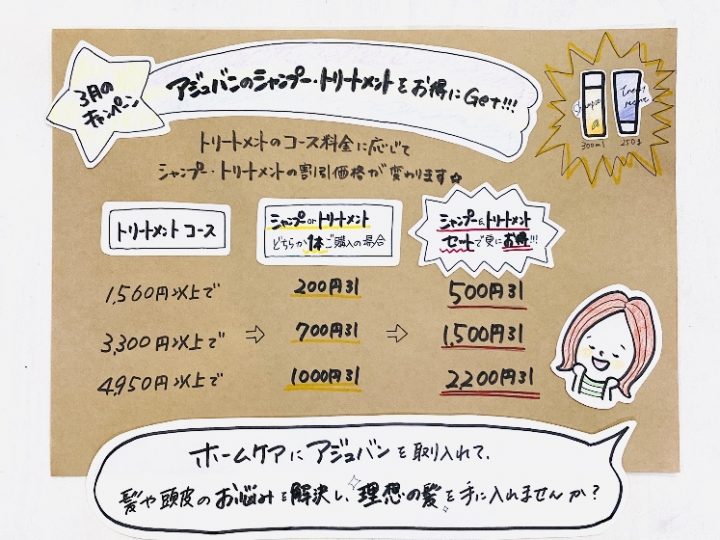 3月の
キャンペーン
アジュバンのシャンプー・トリートメントをお得にGet!!!
300ml
250g
トリートメントのコース料金に応じて
シャンプー・トリートメントの割引価格が変わります☆
トリートメント コース
シャンプーorトリートメント
どちらか1本ご購入の場合
シャンプー&トリートメント
セットで更にお得!!!
1,560円以上で
200円引
500円引
3,300円以上で ⇨ 700円引 ⇨ 1,500円引
4,950円以上で
1000円引
2200円引
ホームケアにアジュバンを取り入れて、
髪や頭皮のお悩みを解決し、理想の髪を手に入れませんか?